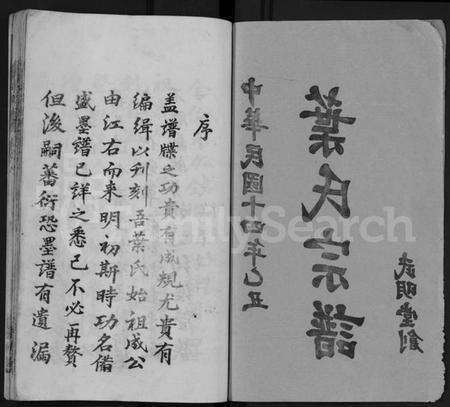 武明堂創
葉氏宗譜
中華民國十四年乙丑
序
盖譜牒之功貴有成規尤貴有
編緝以刋刻吾葉氏始祖威公
由江右而来明初斯時功名偹
盛墨譜已詳之悉已不必再贅
但浚嗣蕃衍恐墨譜有遺漏
FamilySearch